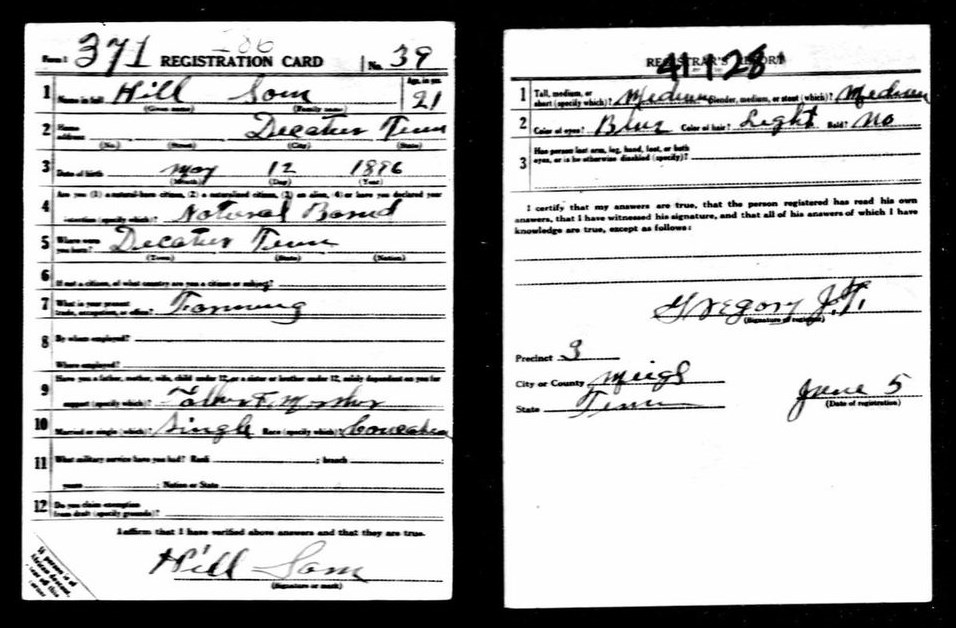 Form 1 371 286 REGISTRATION CARD No. 39
1 Name in full Hill Sam Age, in yrs. 21
(Given name) (Family name)
2 Home address Decatur Tenn
(No.) (Street) (City) (State)
3 Date of birth May 12 1896
(Month) (Day) (Year)
4 Are you (1) a natural-born citizen, (2) a naturalized citizen, (3) an alien, (4) or have you declared your
intention (specify which)? Natural Bornd
5 Where were you born? Decatur Tenn
(Town) (State) (Nation)
6 If not a citizen, of what country are you a citizen or subject?
7 What is your present trade, occupation, or office? Farming
8 By whom employed?
Where employed?
9 Have you a father, mother, wife, child under 12, or a sister or brother under 12, solely dependent on you for
support (specify which)?
10 Married or single (which)? Single Race (specify which)?
11 What military service have you had? Rank ; branch ;
years ; Nation or State
12 Do you claim exemption from draft (specify grounds)?
I affirm that I have verified above answers and that they are true.
Hill Sam
(Signature or mark)
If person is of
African descent,
tear off this
corner.
REGISTRAR'S REPORT
41 1 28
1 Tall, medium, or short (specify which)? Medium Slender, medium, or stout (which)? Medium
2 Color of eyes? Blue Color of hair? Light Bald? No
3 Has person lost arm, leg, hand, foot, or both
eyes, or is he otherwise disabled (specify)?
I certify that my answers are true, that the person registered has read his own
answers, that I have witnessed his signature, and that all of his answers of which I have
knowledge are true, except as follows:
Gregory J.T.
(Signature of registrar)
Precinct 3
City or County Meigs
State Tenn
June 5
(Date of registration)